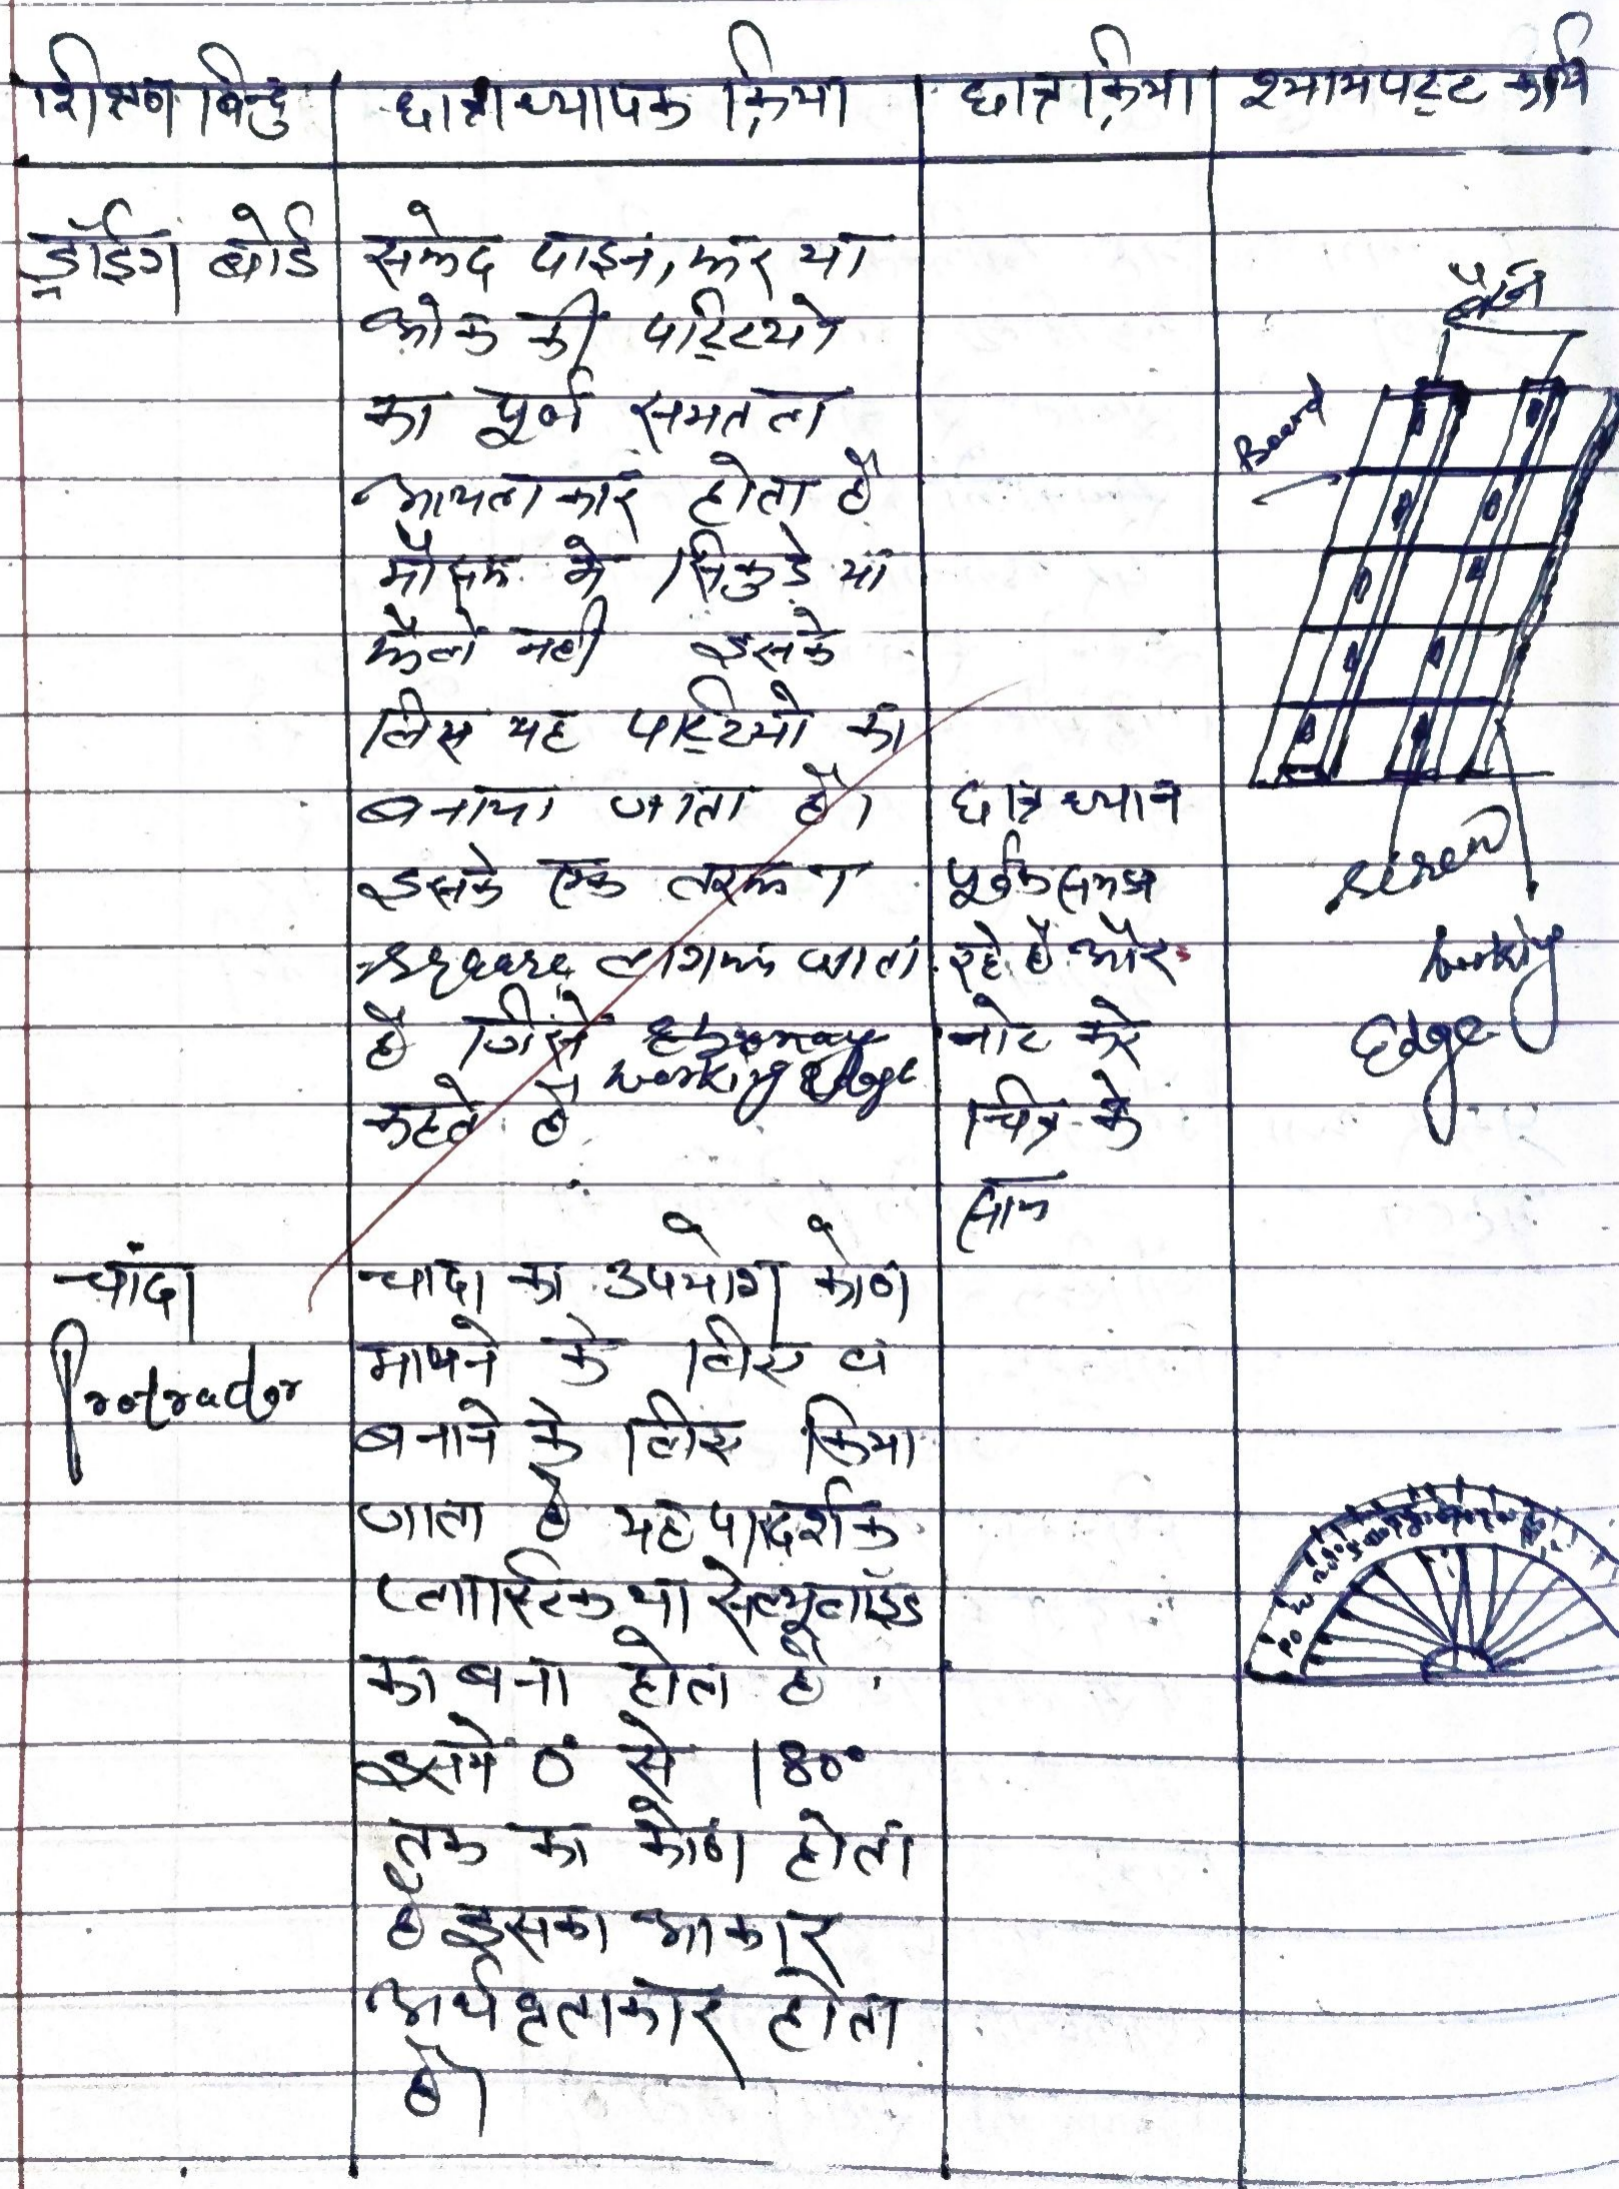 शिक्षण बिन्दु छात्राध्यापक क्रिया छात्र क्रिया श्यामपट्ट कार्य
ड्रॉइंग बोर्ड
सफेद पाइन, फर या
ओक की पट्टियो
का पूर्ण समतल
आयताकार होता है
मौसम मे सिकुडे या
फैले नही इसके
लिए यह पट्टियो का
बनाया जाता है।
इसके एक तरफ T
square लगाया जाता
है जिसे
working Edge
कहते है
छात्र ध्यान
पूर्वक समझ
रहे है और
नोट करे
चित्र के
साथ
बैटन
Board
screw
working
Edge
चांदा
Protractor
चादा का उपयोग कोण
मापने के लिए व
बनाने के लिए किया
जाता है यह पारदर्शक
प्लास्टिक या सेल्यूलाइड
का बना होता है
इसमे 0° से 180°
तक का कोण होता
है इसका आकार
अर्धवृताकार होता
है।